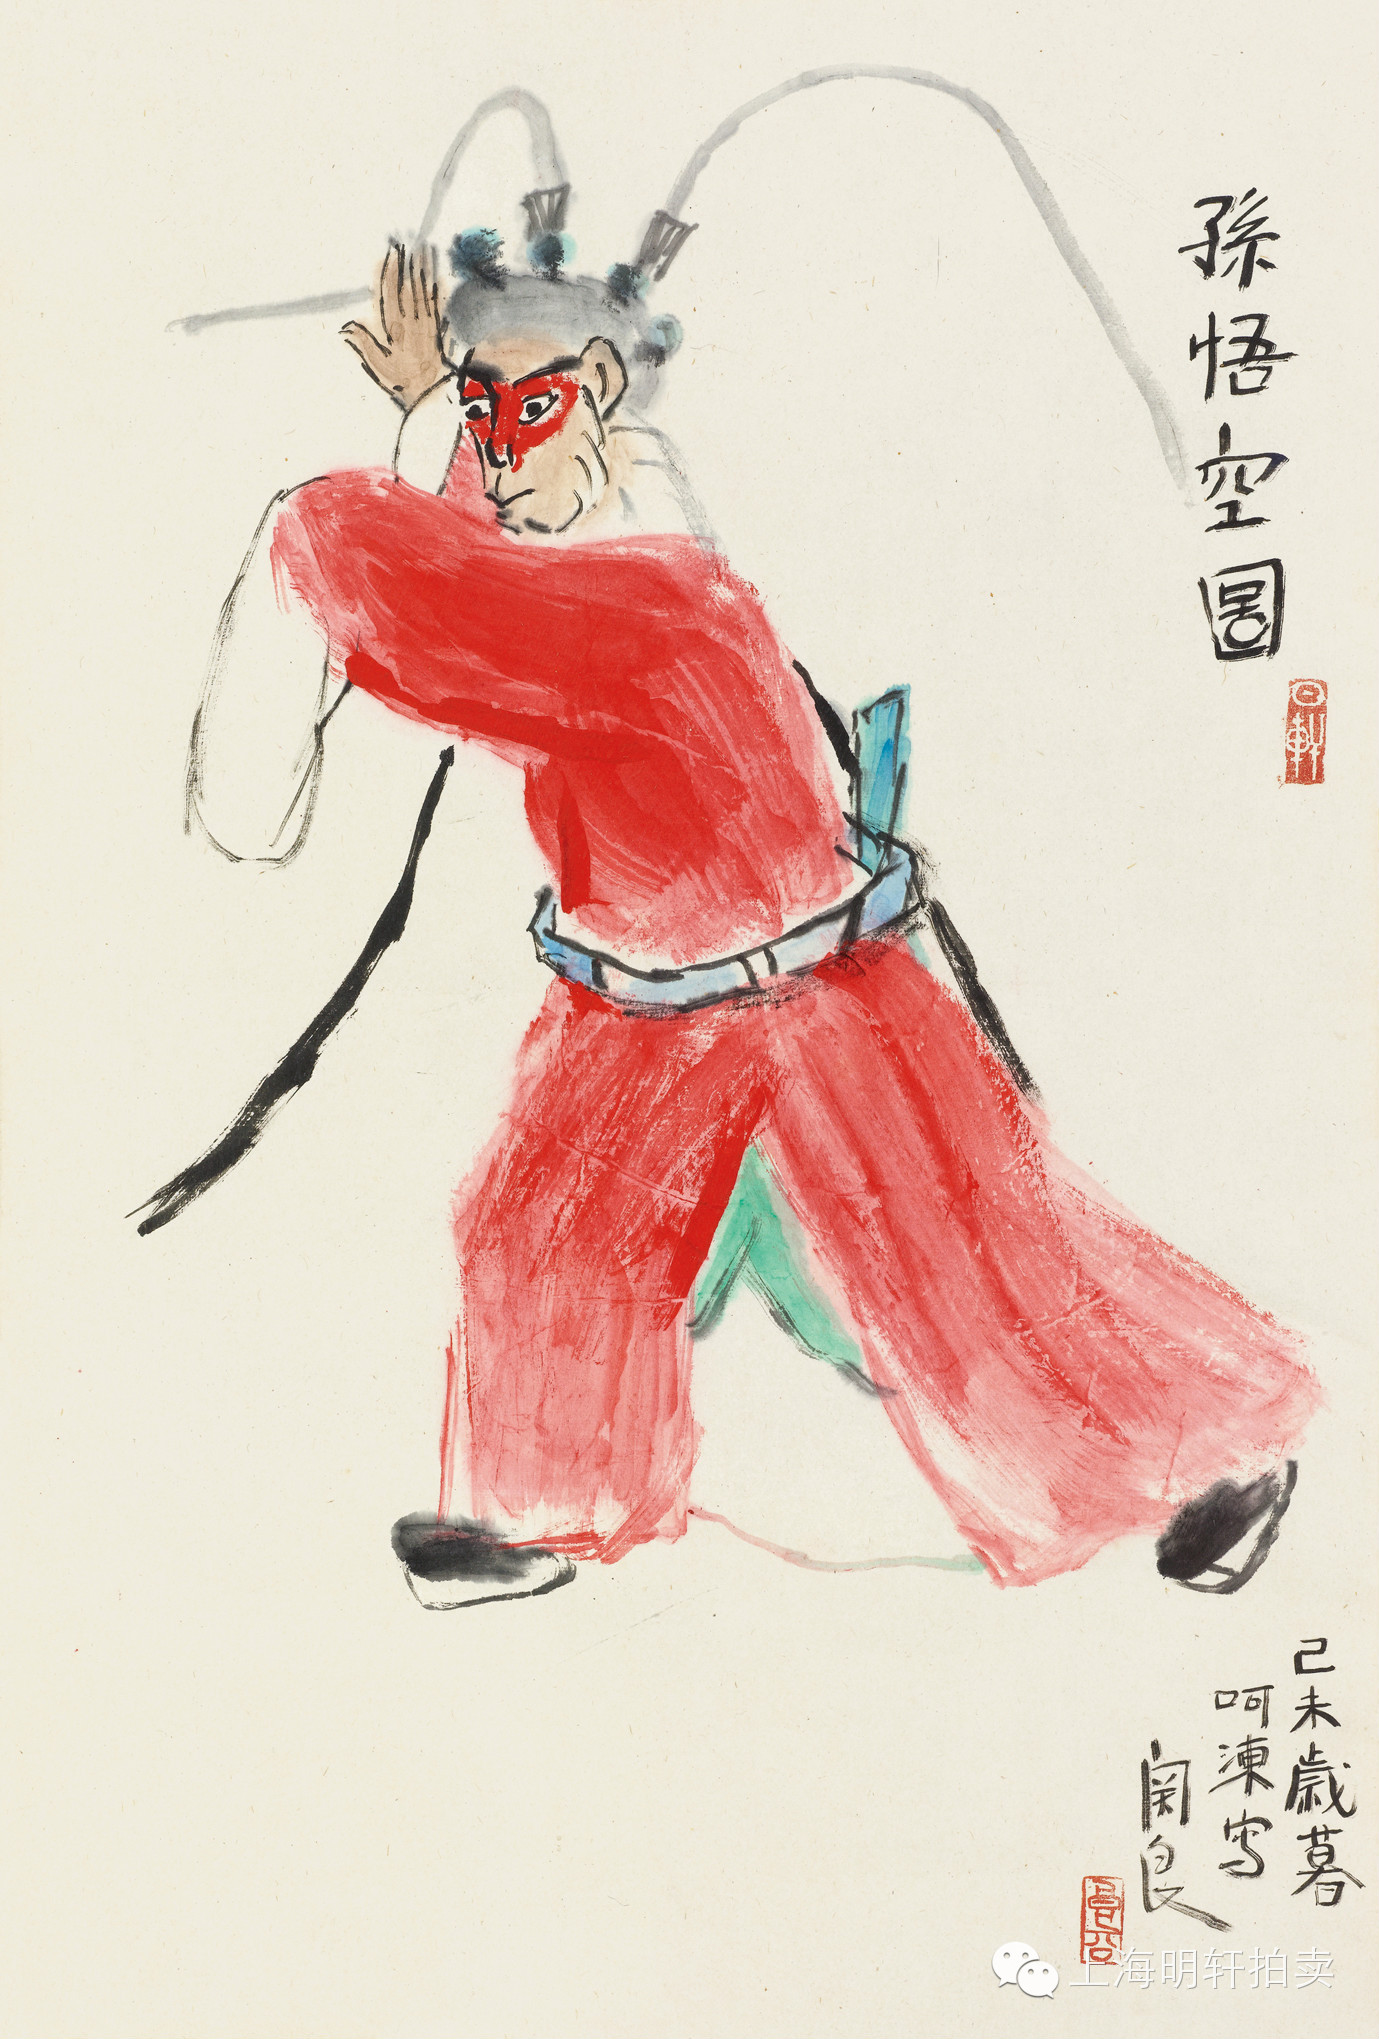 孫悟空圖
己未歲暮
呵凍寫
関良
良公
上海明轩拍卖